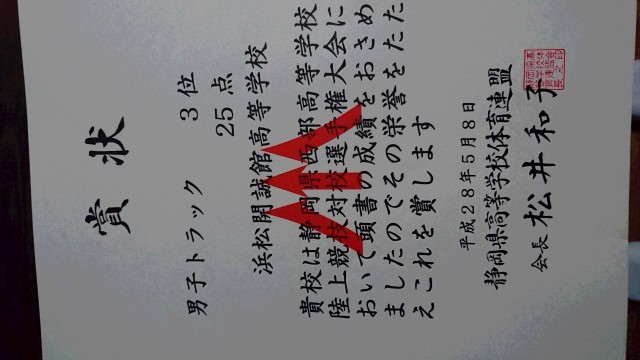 賞状
男子トラック 3位
25点
浜松開誠館高等学校
貴校は静岡県西部高等学校
陸上競技対校選手権大会に
おいて頭書の成績をおさめ
ましたのでその栄誉をたた
えこれを賞します
平成28年5月8日
静岡県高等学校体育連盟
会長 松井和子